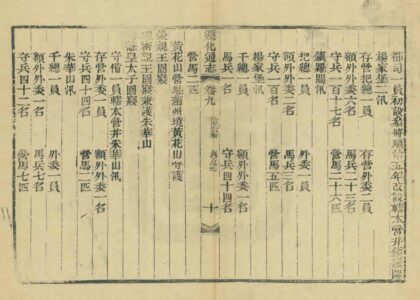 都司一員初設參將順治五年改設轄本營并鎮羅關
楊家堡二汛
存營把總一員　存營外委一員
額外外委六名　馬兵二十三名
守兵一百十七名　營馬二十六匹
鎮羅關汛
把總一員　外委一員
額外外委二名　馬兵三名
守兵一百名　營馬五匹
楊家堡汛
千總一員　額外外委一名
馬兵一名　守兵四十四名
營馬二匹
遵化通志　卷九　十
黃花山營駐薊州境黃花山守護
榮親王園寢
理密親王園寢兼護朱華山
端慧皇太子園寢
守備一員轄本營并朱華山汛
存營外委一員　額外外委一名
守兵四十四名　營馬二匹
朱華山汛
千總一員　外委一員
額外外委一名　馬兵七名
守兵四十二名　營馬七匹